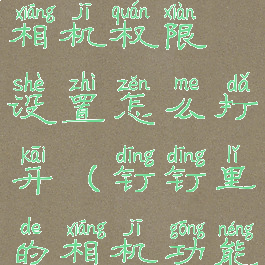 xiàng jī quán xiàn
相机权限
shè zhì zěn me dǎ
设置怎么打
kāi dīng dīng lǐ
开(钉钉里
de xiàng jī gōng néng
的相机功能